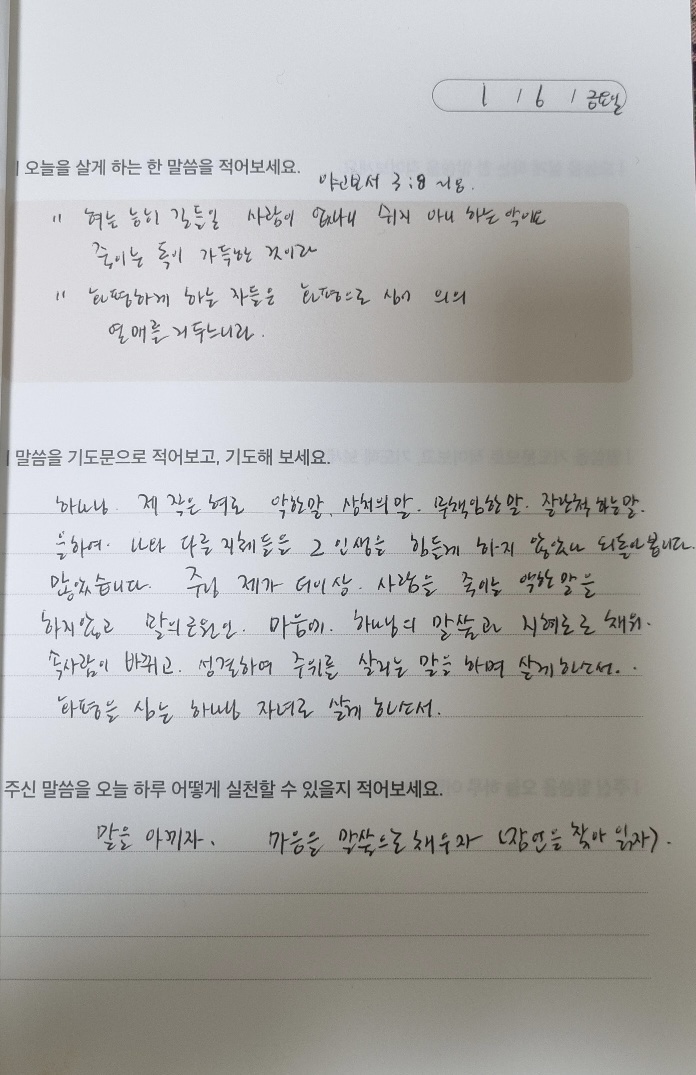 1 / 6 / 금요일
오늘을 살게 하는 한 말씀을 적어보세요.
야고보서 3:8
" 혀는 능히 길들일 사람이 없나니 쉬지 아니 하는 악이요
죽이는 독이 가득한 것이라
" 화평하게 하는 자들은 화평으로 심어 의의
열매를 거두느니라.
말씀을 기도문으로 적어보고, 기도해 보세요.
하나님. 제 작은 혀로 악한말, 상처의 말. 무책임한 말. 잘난척 하는말.
을하여. 다른 지체들을 그 인생을 힘들게 하지 않았나 되돌아 봅니다.
많았습니다. 주님 제가 더이상. 사람을 죽이는 악한 말을
하지않고 말의 근원인. 마음에. 하나님의 말씀과 지혜로 채워.
속사람이 바뀌고. 성결하여 주위를 살리는 말을 하며 살게하소서..
화평을 심는 하나님 자녀로 살게 하소서.
주신 말씀을 오늘 하루 어떻게 실천할 수 있을지 적어보세요.
말을 아끼자. 마음을 말씀으로 채우자 (잠언을 찾아 읽자).